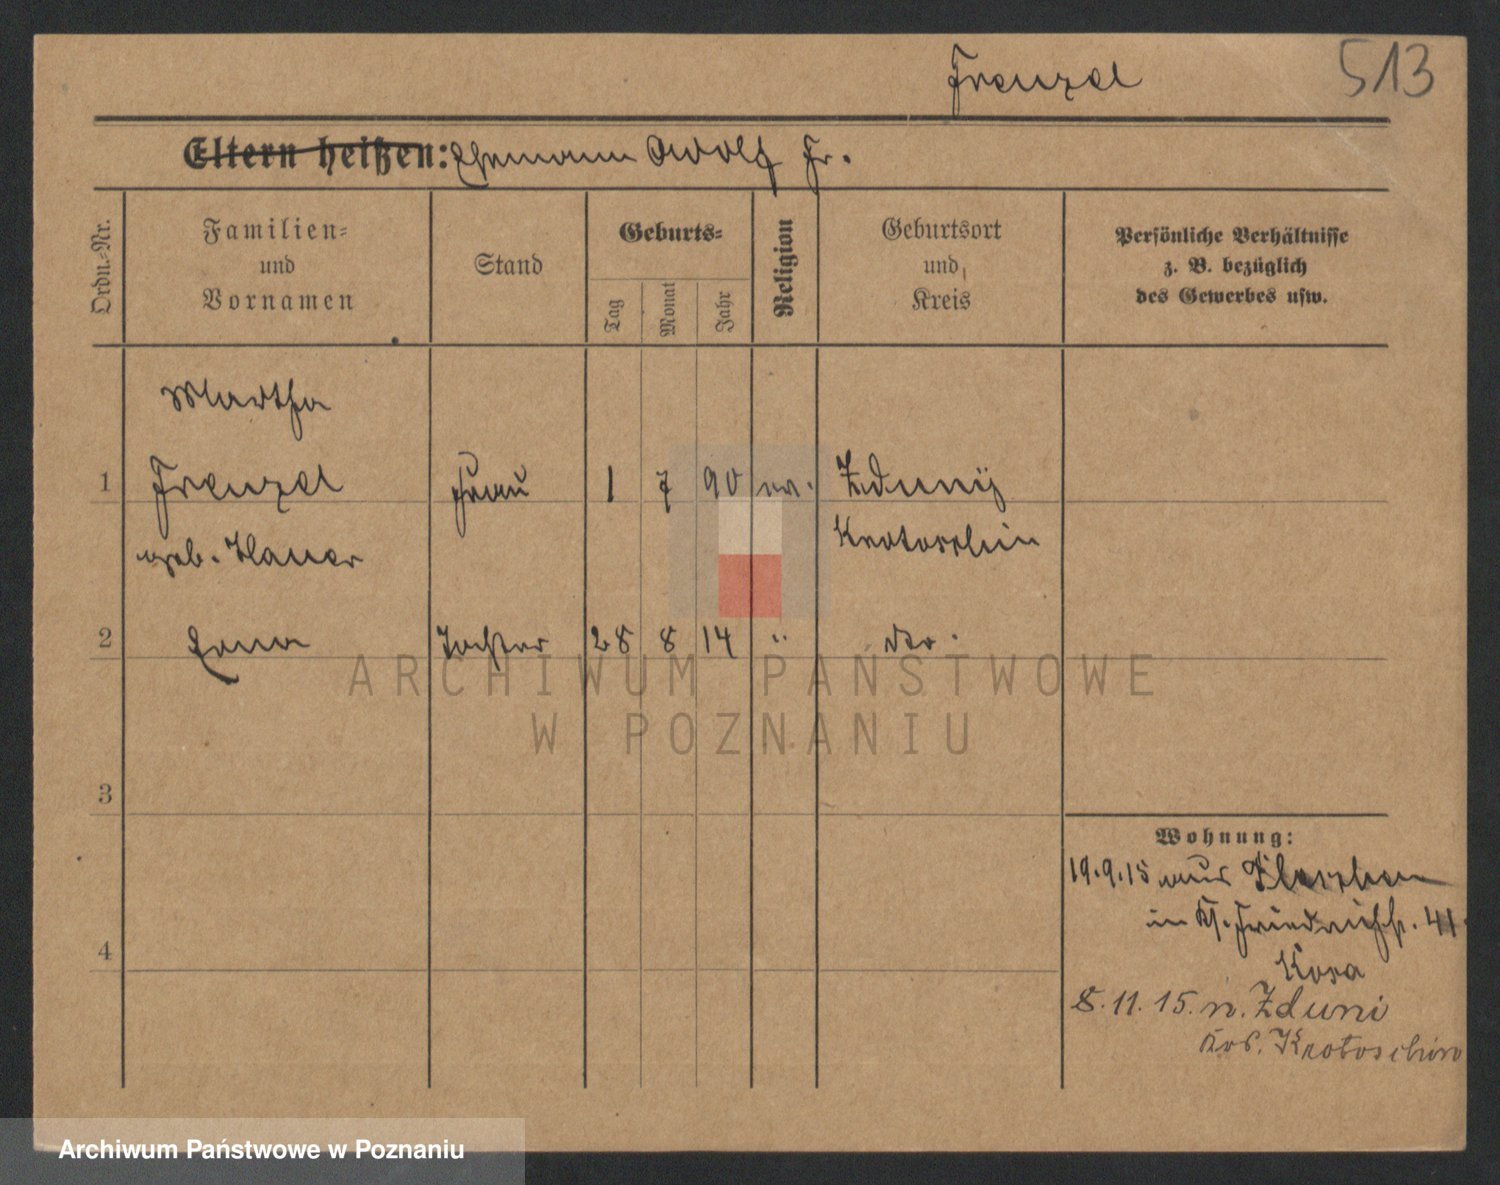 Frenzel
513
Eltern heißen: Ehemann Adolf Fr.
Ordn.-Nr.
Familien-
und
Vornamen
Stand
Geburts-
Tag
Monat
Jahr
Religion
Geburtsort
und
Kreis
Persönliche Verhältnisse
z. B. bezüglich
des Gewerbes usw.
Martha
1 Frenzel Frau 1 7 90 ev. Zduny
geb. Hauer Krotoschin
2 Erna Tochter 28 8 14 " dto.
ARCHIWUM PAŃSTWOWE
W POZNANIU
3
Wohnung:
19.9.15 aus
in Ks. Friedrichstr. 41
4
8.11.15. n. Zduni
Krotoschin
Archiwum Państwowe w Poznaniu